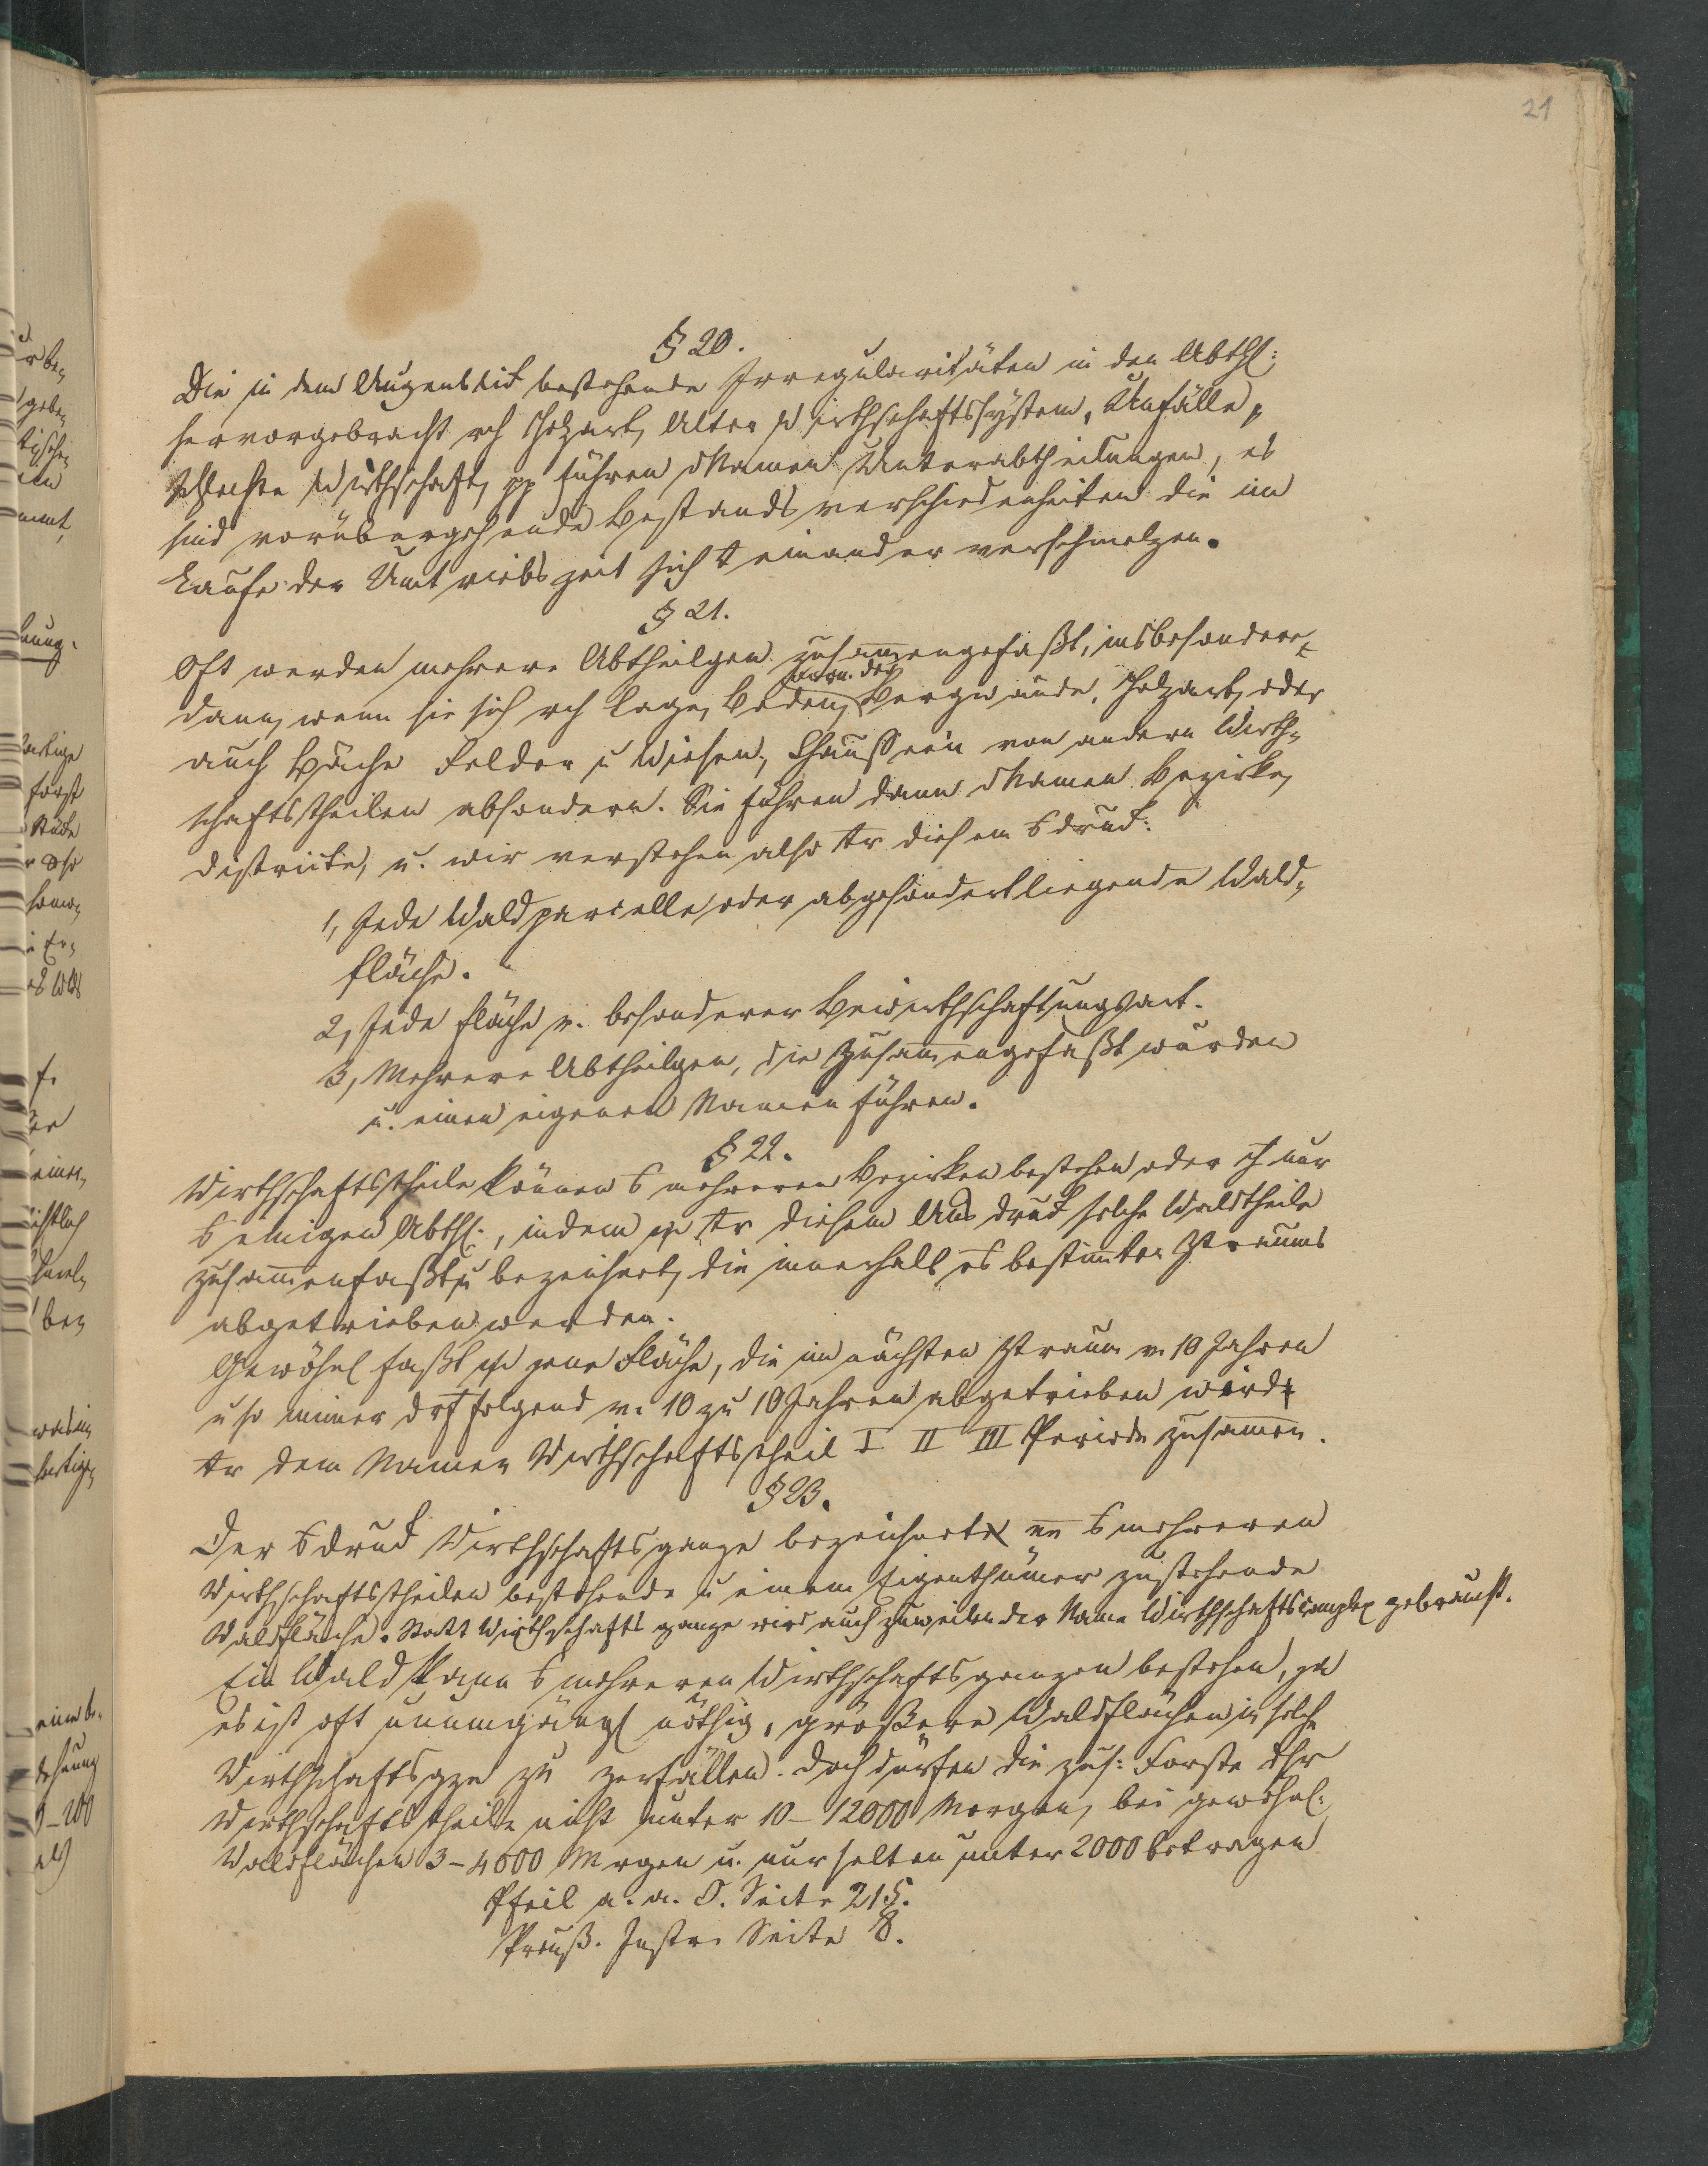 21
§ 20.
Die in dem Augenblick bestehende Irregularitäten in den Abthl:
hervorgebracht rch Holzart, Alter Wirthschaftssystem, Unfälle,
schlechte Wirthschaft, pp führen Namen Unterabtheilungen, es
sind vorübergehende Bestandsverschiedenheiten die im
Laufe der Umtriebszeit sich einander verschmelzen.
§ 21.
Oft werden mehrere Abtheilgen zusammengefaßt, insbesondere
dann, wenn sie sich rch Lage, Boden, Bergwände, Holzart, oder
auch Bäche Felder u Wiesen, Chausseèn von andern Wirth-
schaftstheilen absondern. Sie führen dann Namen Bezirke,
Districte, u. wir verstehen also tr diesem druck:
1, Jede Waldparcelle oder abgesondert liegende Wald-
fläche.
2, Jede Fläche v. besonderer Bewirthschaftungsart.
3, Mehrere Abtheilgen, die zusammengefaßt wurden
u. einen eigenen Namen führen.
§ 22.
Wirthschaftstheile können mehreren Bezirken bestehen oder nur
einigen Abthl:, indem tr diesem Ausdruck solche Waldtheile
zusammenfaßt u bezeichnet, die innerhalb bestimmten Ztraums
abgetrieben werden.
Gewöhnl faßt jene Fläche, die im nächsten Ztraum v. 10 Jahren
u so immer folgend v. 10 zu 10 Jahren abgetrieben wird
tr dem Namen Wirthschaftstheil I II III Periode zusammen.
§ 23.
Der druck Wirthschaftsganze bezeichnet mehreren
Wirthschaftstheilen bestehende u einem Eigenthümer zustehende
Waldfläche. Statt Wirthschaftsganze wird auch zuweilen der Name Wirthschaftscomplex gebraucht.
Ein Wald kann mehreren Wirthschaftsganzen bestehen, ja
es ist oft unumgängl nöthig, größere Waldflächen in solche
Wirthschaftsgze zu zerfällen. Doch dürfen die zus: Forste
Wirthschaftstheile nicht unter 10-12000 Morgen, bei gewöhnl:
Waldflächen 3-4000 Morgen u. nur selten unter 2000 betragen
Pfeil a. a. O. Seite 215.
Preuß. Instr. Seite 8.